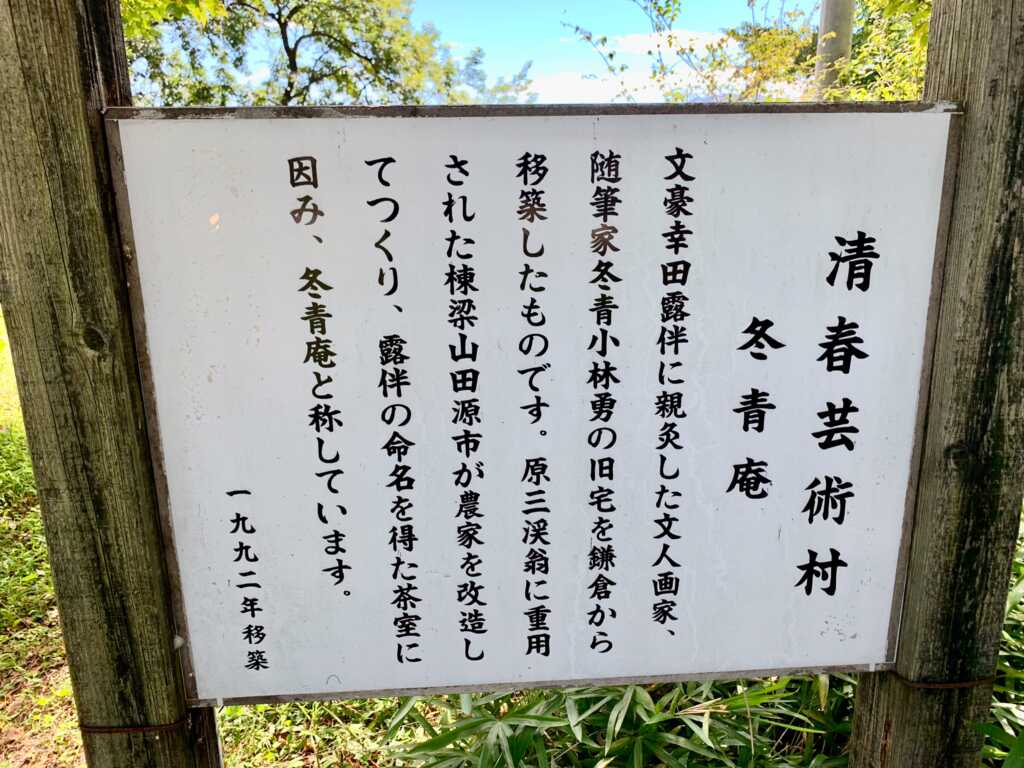 清春芸術村
冬青庵
文豪幸田露伴に親灸した文人画家、
随筆家冬青小林勇の旧宅を鎌倉から
移築したものです。原三渓翁に重用
された棟梁山田源市が農家を改造し
てつくり、露伴の命名を得た茶室に
因み、冬青庵と称しています。
一九九二年移築